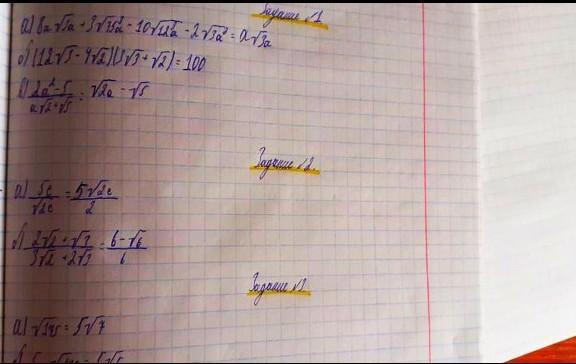 Задание №1
а) 8a√3a + 3√75a² - 10√12a² - 2√3a² = a√3a
б) (12√3 - 4√2)(3√3 + √2) = 100
в) 2a² - 5 / a√2 + √5 = √2a - √5
Задание №2.
а) 5c / √2c = 5√2c / 2
б) 2√2 + √3 / 3√2 + 2√3 = 6 - √6 / 6
Задание №3
а) √175 = 5√7